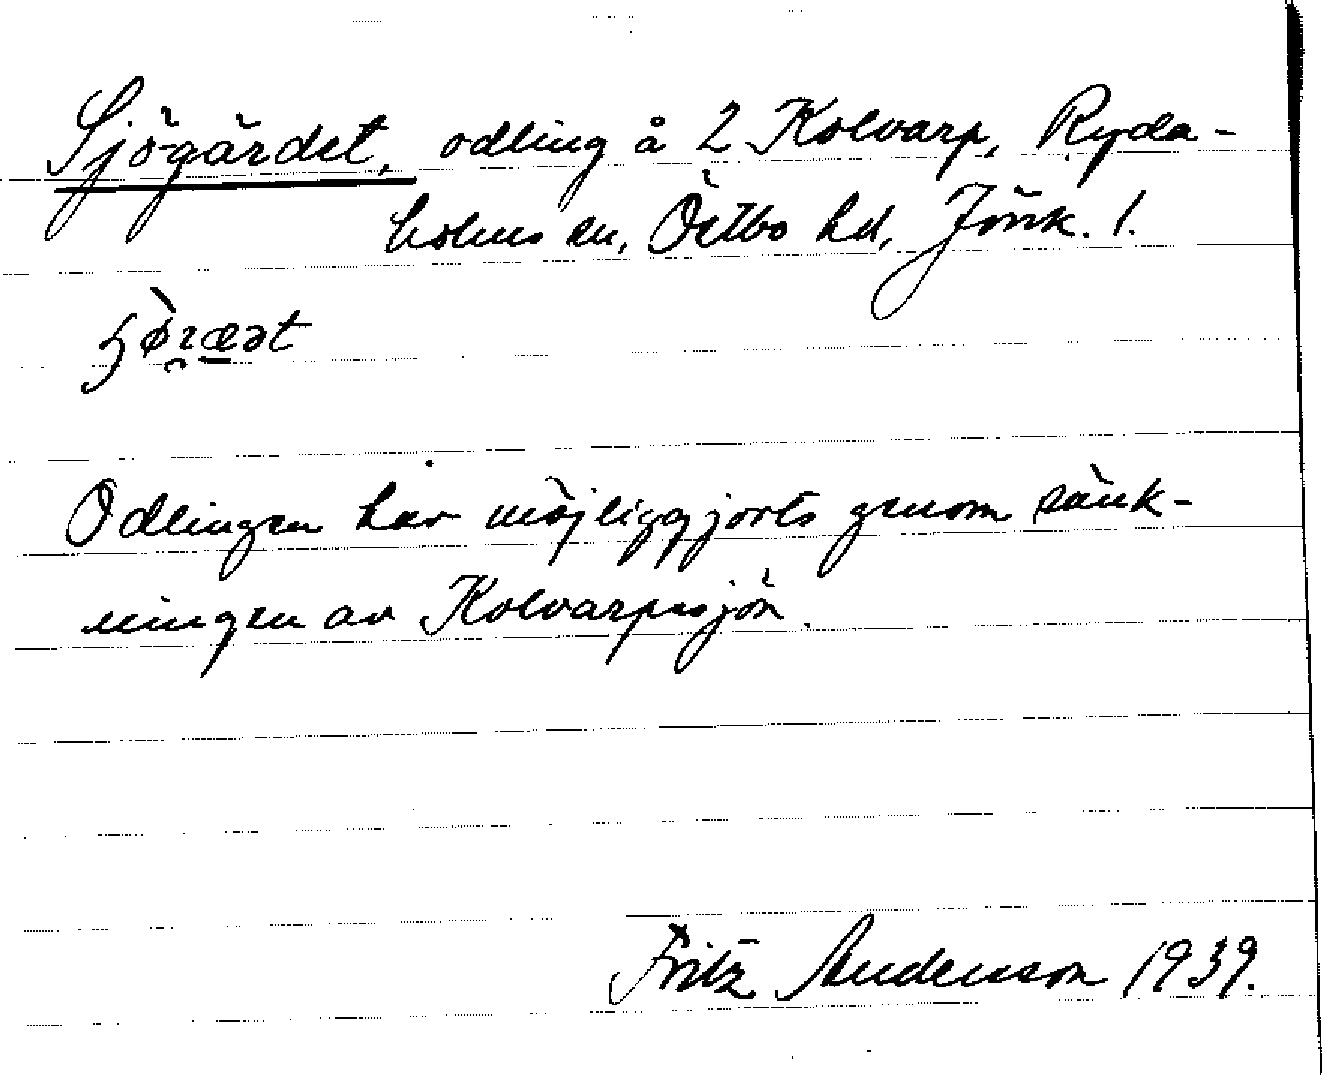 Sjögärdet, odling å 2 Kolvarp, Ryda-
holms sn, Östbo hd, Jönk. l.
Odlingen har möjliggjorts genom sänk-
ningen av Kolvarpssjön.
Fritz Andersson 1939.